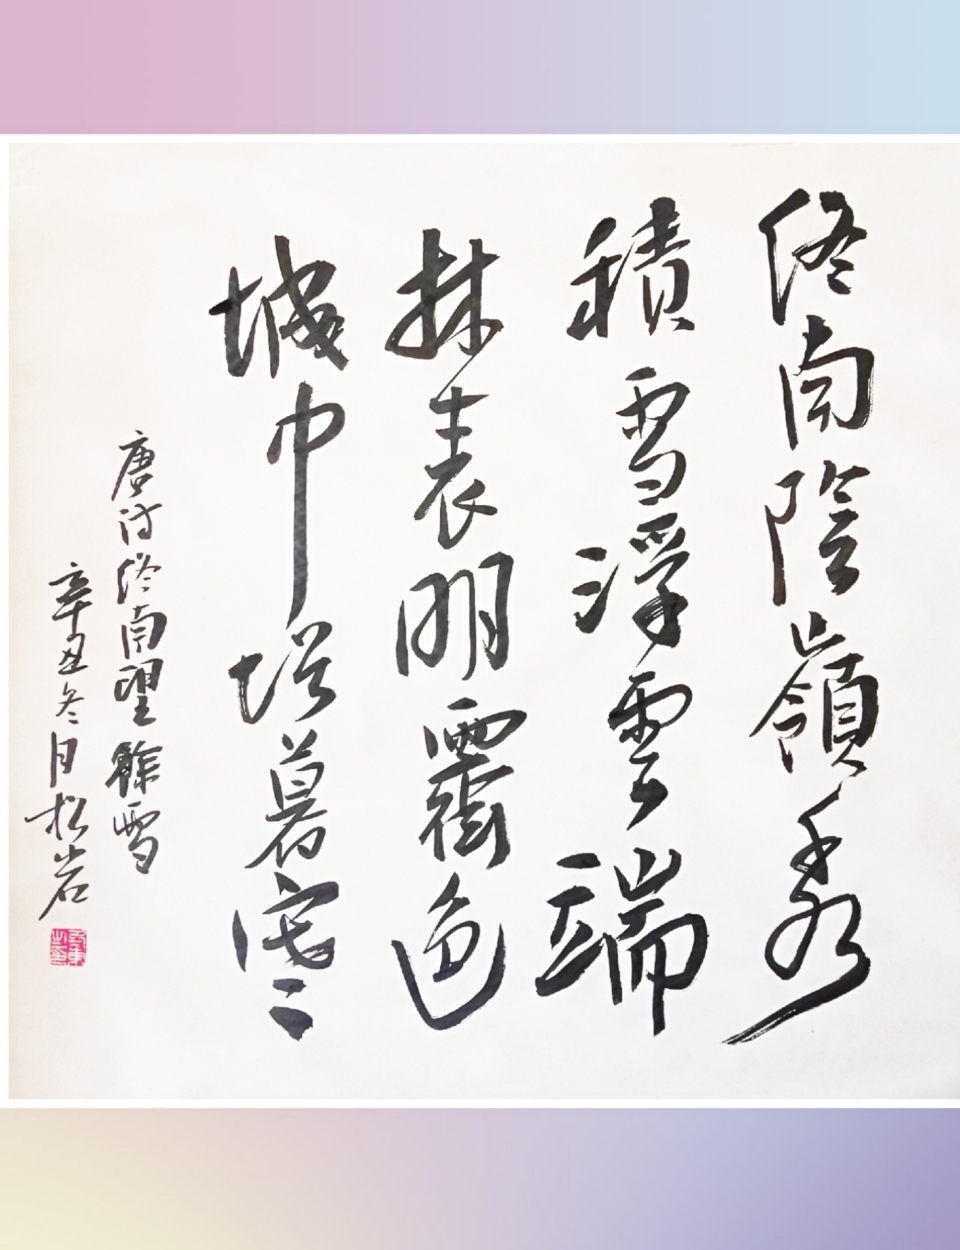 终南陰嶺秀
積雪浮雲端
林表明霽色
城中增暮寒
唐诗终南望餘雪
辛丑冬月松岩